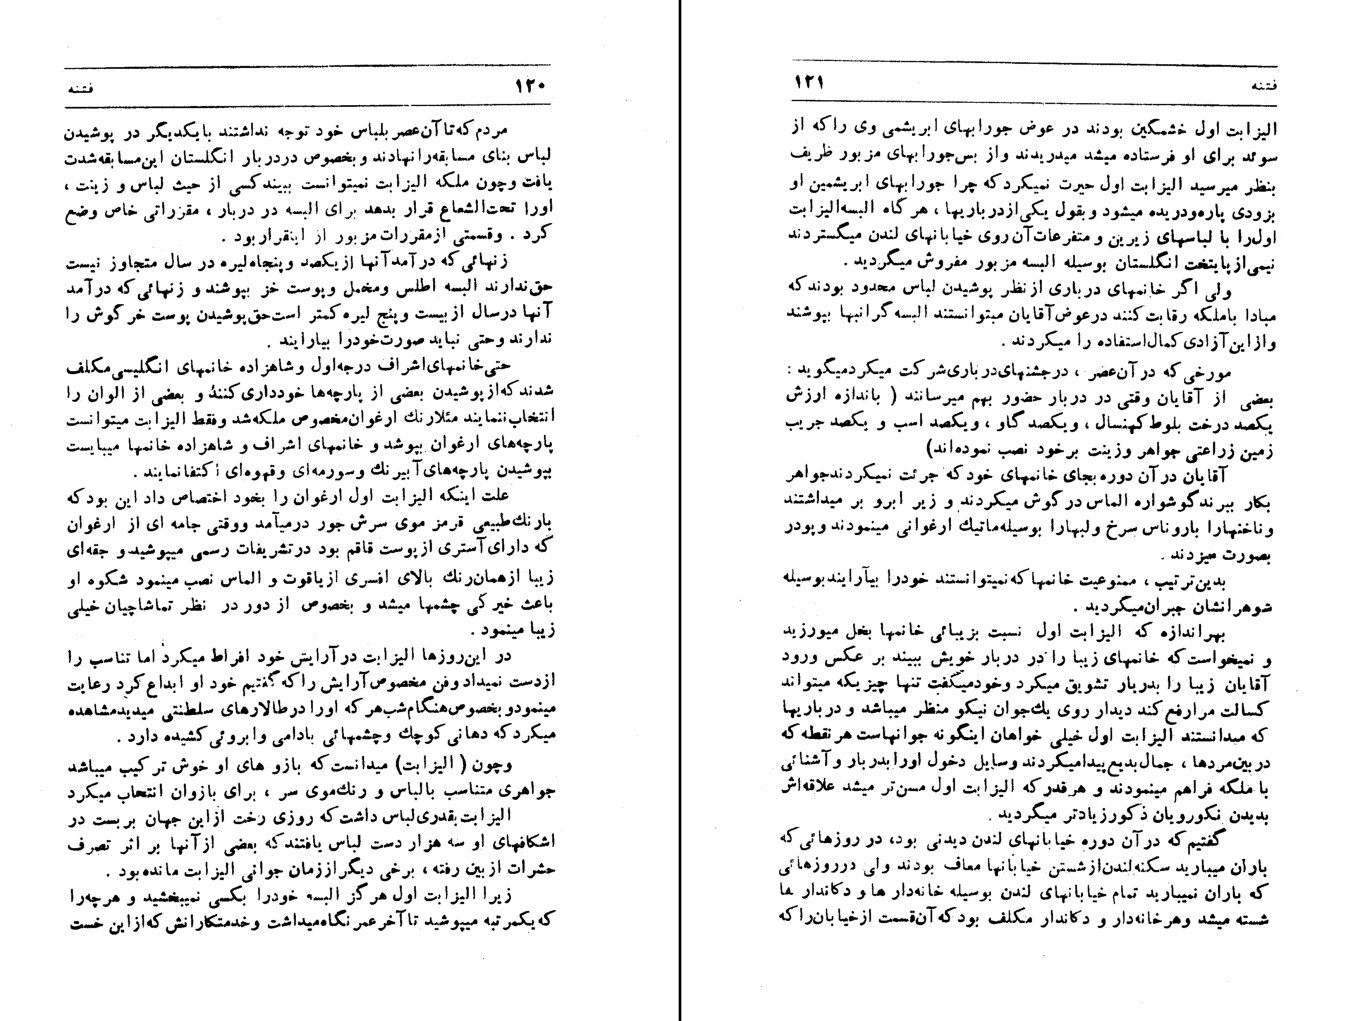 ۱۲۰ فتنه
مردم که تا آن عصر بلباس خود توجه نداشتند با یکدیگر در پوشیدن
لباس بنای مسابقه را نهادند و بخصوص در دربار انگلستان این مسابقه شدت
یافت و چون ملکه الیزابت نمیتوانست ببیند کسی از حیث لباس و زینت ،
او را تحت الشعاع قرار بدهد برای البسه در دربار ، مقرراتی خاص وضع
کرد . و قسمتی از مقررات مزبور از اینقرار بود .
زنهائی که درآمد آنها از یکصد و پنجاه لیره در سال متجاوز نیست
حق ندارند البسه اطلس و مخمل و پوست خز بپوشند و زنهائی که درآمد
آنها در سال از بیست و پنج لیره کمتر است حق پوشیدن پوست خرگوش را
ندارند و حتی نباید صورت خود را بیارایند .
حتی خانمهای اشراف درجه اول و شاهزاده خانمهای انگلیسی مکلف
شدند که از پوشیدن بعضی از پارچه‌ها خودداری کنند و بعضی از الوان را
انتخاب ننمایند مثلا رنك ارغوان مخصوص ملکه شد و فقط الیزابت میتوانست
پارچه‌های ارغوان بپوشد و خانمهای اشراف و شاهزاده خانمها میبایست
بپوشیدن پارچه‌های آبیرنك و سورمه‌ای و قهوه‌ای اکتفا نمایند .
علت اینکه الیزابت اول ارغوان را بخود اختصاص داد این بود که
با رنك طبیعی قرمز موی سرش جور درمیآمد و وقتی جامه ای از ارغوان
که دارای آستری از پوست قاقم بود در تشریفات رسمی میپوشید و جقه‌ای
زیبا از همان رنك بالای افسری از یاقوت و الماس نصب مینمود شکوه او
باعث خیرگی چشمها میشد و بخصوص از دور در نظر تماشاچیان خیلی
زیبا مینمود .
در این روزها الیزابت در آرایش خود افراط میکرد اما تناسب را
از دست نمیداد و فن مخصوص آرایش را که گفتیم خود او ابداع کرد رعایت
مینمود و بخصوص هنگام شب هر که او را در طالارهای سلطنتی میدید مشاهده
میکرد که دهانی کوچك و چشمهائی بادامی و ابروئی کشیده دارد .
و چون ( الیزابت) میدانست که بازو های او خوش ترکیب میباشد
جواهری متناسب با لباس و رنك موی سر ، برای بازوان انتخاب میکرد
الیزابت بقدری لباس داشت که روزی رخت از این جهان بربست در
اشکافهای او سه هزار دست لباس یافتند که بعضی از آنها بر اثر تصرف
حشرات از بین رفته ، برخی دیگر از زمان جوانی الیزابت مانده بود .
زیرا الیزابت اول هرگز البسه خود را بکسی نمیبخشید و هر چه را
که یکمرتبه میپوشید تا آخر عمر نگاه میداشت و خدمتکارانش که از این خست
۱۲۱ فتنه
الیزابت اول خشمگین بودند در عوض جورابهای ابریشمی وی را که از
سوئد برای او فرستاده میشد میدریدند و از بس جورابهای مزبور ظریف
بنظر میرسید الیزابت اول حیرت نمیکرد که چرا جورابهای ابریشمین او
بزودی پاره و دریده میشود و بقول یکی از درباریها ، هر گاه البسه الیزابت
اول را با لباسهای زیرین و متفرعات آن روی خیابانهای لندن میگستردند
نیمی از پایتخت انگلستان بوسیله البسه مزبور مفروش میگردید .
ولی اگر خانمهای درباری از نظر پوشیدن لباس محدود بودند که
مبادا با ملکه رقابت کنند در عوض آقایان میتوانستند البسه گرانبها بپوشند
و از این آزادی کمال استفاده را میکردند .
مورخی که در آن عصر ، در جشنهای درباری شرکت میکرد میگوید :
بعضی از آقایان وقتی در دربار حضور بهم میرسانند ( باندازه ارزش
یکصد درخت بلوط کهنسال ، و یکصد گاو ، و یکصد اسب و یکصد جریب
زمین زراعتی جواهر و زینت بر خود نصب نموده‌اند)
آقایان در آن دوره بجای خانمهای خود که جرئت نمیکردند جواهر
بکار ببرند گوشواره الماس در گوش میکردند و زیر ابرو بر میداشتند
و ناخنها را با روناس سرخ و لبها را بوسیله ماتیك ارغوانی مینمودند و پودر
بصورت میزدند .
بدین ترتیب ، ممنوعیت خانمها که نمیتوانستند خود را بیآرایند بوسیله
شوهرانشان جبران میگردید .
بهر اندازه که الیزابت اول نسبت بزیبائی خانمها بخل میورزید
و نمیخواست که خانمهای زیبا را در دربار خویش ببیند بر عکس ورود
آقایان زیبا را بدربار تشویق میکرد و خود میگفت تنها چیزیکه میتواند
کسالت مرا رفع کند دیدار روی یك جوان نیکو منظر میباشد و درباریها
که میدانستند الیزابت اول خیلی خواهان اینگونه جوانهاست هر نقطه که
در بین مردها ، جمال بدیع پیدا میکردند وسایل دخول او را بدربار و آشنائی
با ملکه فراهم مینمودند و هر قدر که الیزابت اول مسن تر میشد علاقه‌اش
بدیدن نکورویان ذکور زیادتر میگردید .
گفتیم که در آن دوره خیابانهای لندن دیدنی بود، در روزهائی که
باران میبارید سکنه لندن از شستن خیابانها معاف بودند ولی در روزهائی
که باران نمیبارید تمام خیابانهای لندن بوسیله خانه‌دار ها و دکاندار ها
شسته میشد و هر خانه‌دار و دکاندار مکلف بود که آن قسمت از خیابان را که